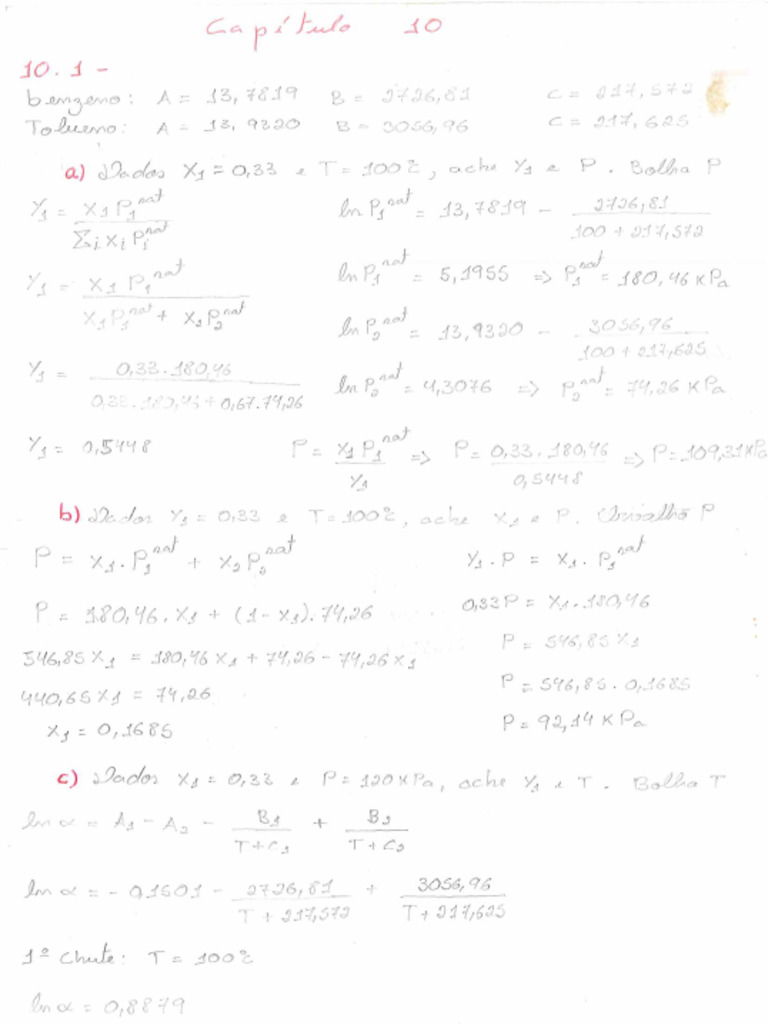 Capítulo 10
10.1 -
benzeno: A = 13,7819 B = 2726,81 C = 217,572
Tolueno: A = 13,9320 B = 3056,96 C = 217,625
a) Dados X₁ = 0,33 e T = 100ºC, ache Y₁ e P. Bolha P
Y₁ = X₁P₁ˢᵃᵗ / Σᵢ Xᵢ Pᵢˢᵃᵗ ln P₁ˢᵃᵗ = 13,7819 - 2726,81 / 100 + 217,572
Y₁ = X₁ P₁ˢᵃᵗ / X₁P₁ˢᵃᵗ + X₂P₂ˢᵃᵗ ln P₁ˢᵃᵗ = 5,1955 => P₁ˢᵃᵗ = 180,46 KPa
ln P₂ˢᵃᵗ = 13,9320 - 3056,96 / 100 + 217,625
Y₁ = 0,33.180,46 / 0,33.180,45 + 0,67.74,26 ln P₂ˢᵃᵗ = 4,3076 => P₂ˢᵃᵗ = 74,26 KPa
Y₁ = 0,5448 P = X₁P₁ˢᵃᵗ / Y₁ => P = 0,33.180,46 / 0,5448 => P = 109,31KPa
b) Dados Y₁ = 0,33 e T = 100ºC, ache X₁ e P. Orvalho P
P = X₁.P₁ˢᵃᵗ + X₂P₂ˢᵃᵗ Y₁.P = X₁.P₁ˢᵃᵗ
P = 180,46.X₁ + (1-X₁).74,26 0,33P = X₁.180,46
546,85X₁ = 180,46X₁ + 74,26 - 74,26X₁ P = 546,85X₁
440,65X₁ = 74,26 P = 546,85.0,1685
X₁ = 0,1685 P = 92,14KPa
c) Dados X₁ = 0,33 e P = 120KPa, ache Y₁ e T. Bolha T
ln α = A₁ - A₂ - B₁ / T+C₁ + B₂ / T+C₂
ln α = - 0,1501 - 2726,81 / T + 217,572 + 3056,96 / T + 217,625
1º Chute: T = 100ºC
ln α = 0,8879